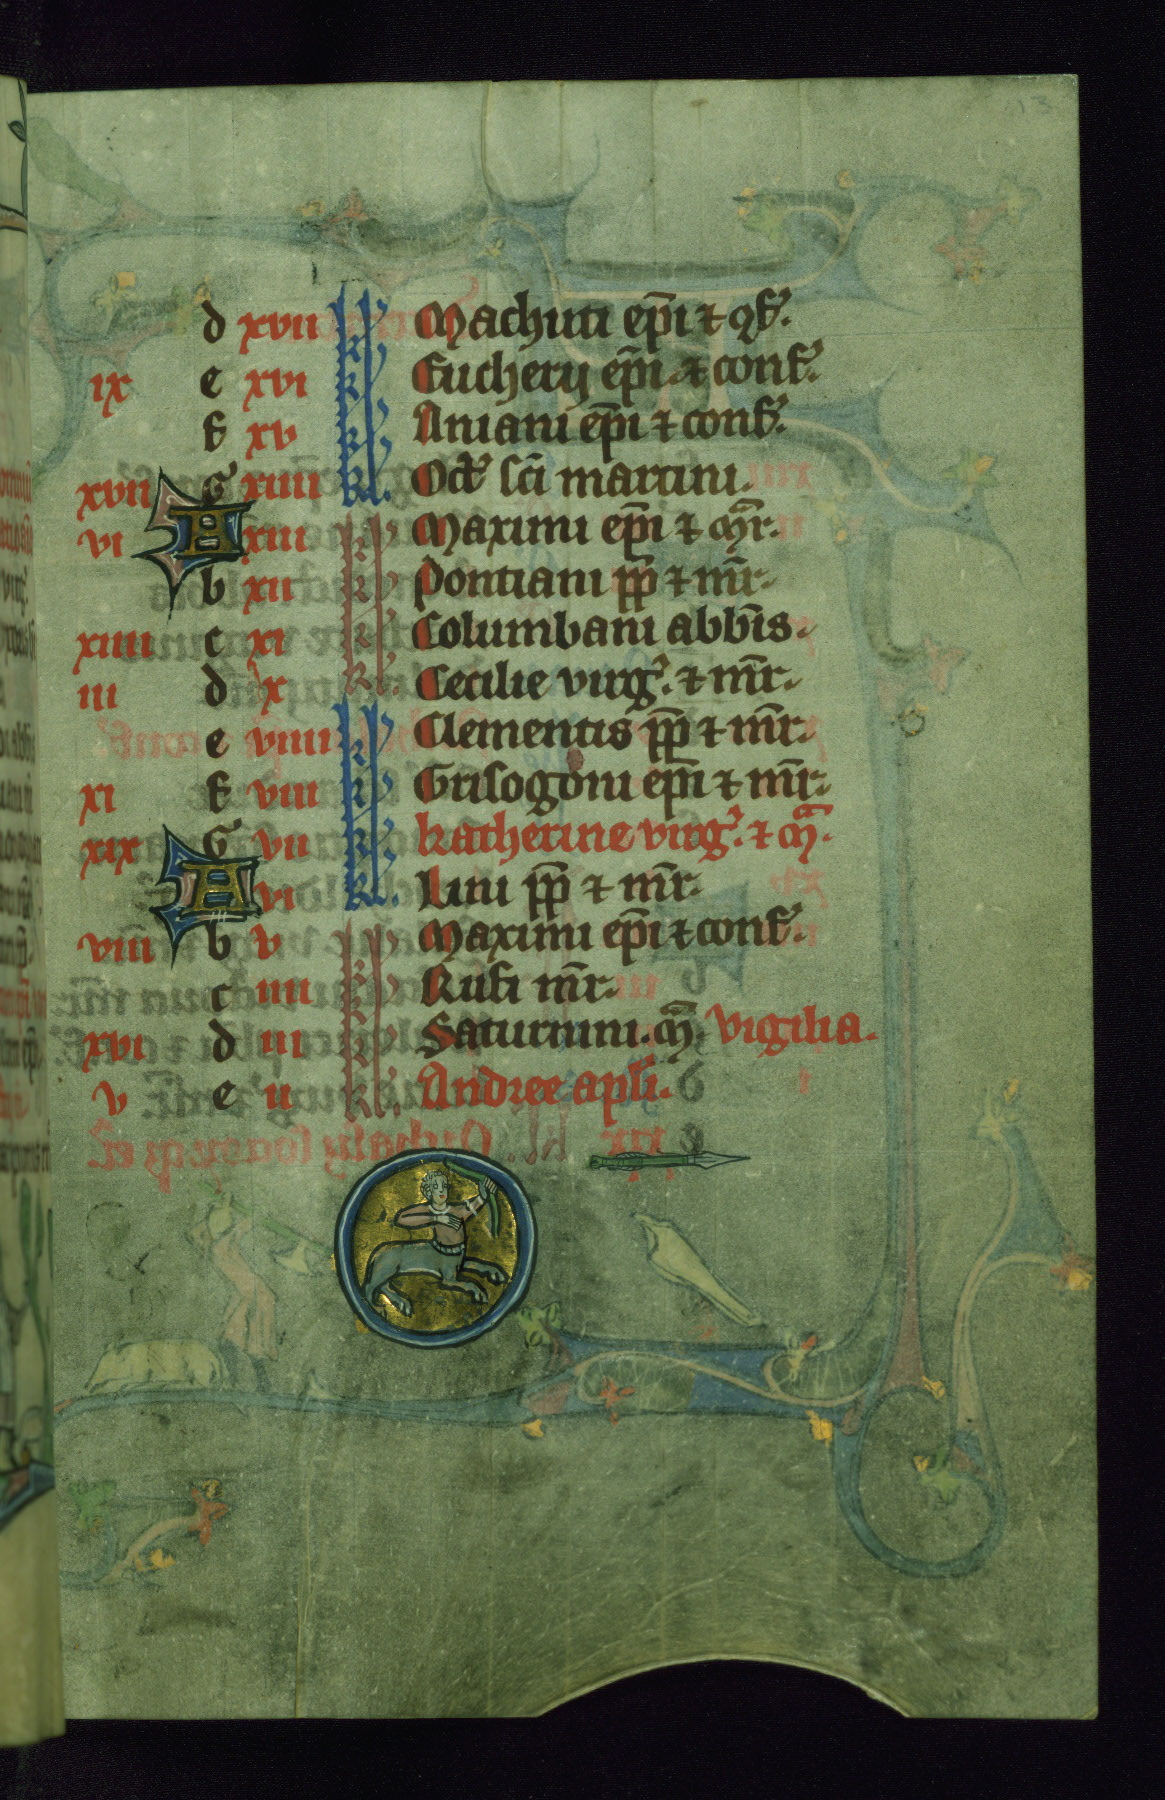 13
d xvii Machuti ep̄i ⁊ ꝯf̄.
ix e xvi Eucherij ep̄i ⁊ conf̄.
f xv Aniani ep̄i ⁊ conf̄.
xvii G xiiii Oct̄ sc̄i martini.
vi A xiii Maximi ep̄i ⁊ m̄r.
b xii Pontiani pp̄ ⁊ m̄r.
xiiii c xi Columbani abb̄is.
iii d x Cecilie virḡ. ⁊ m̄r.
e viiii Clementis pp̄ ⁊ m̄r.
xi f viii Grisogoni ep̄i ⁊ m̄r.
xix G vii katherine virḡ. ⁊ m̄.
A vi kl. Lini pp̄ ⁊ m̄r.
viii b v Maximi ep̄i ⁊ conf̄.
c iiii Rufi m̄r.
xvi d iii Saturnini. m̄. Vigilia.
v e ii kl. Andree apl̄i.